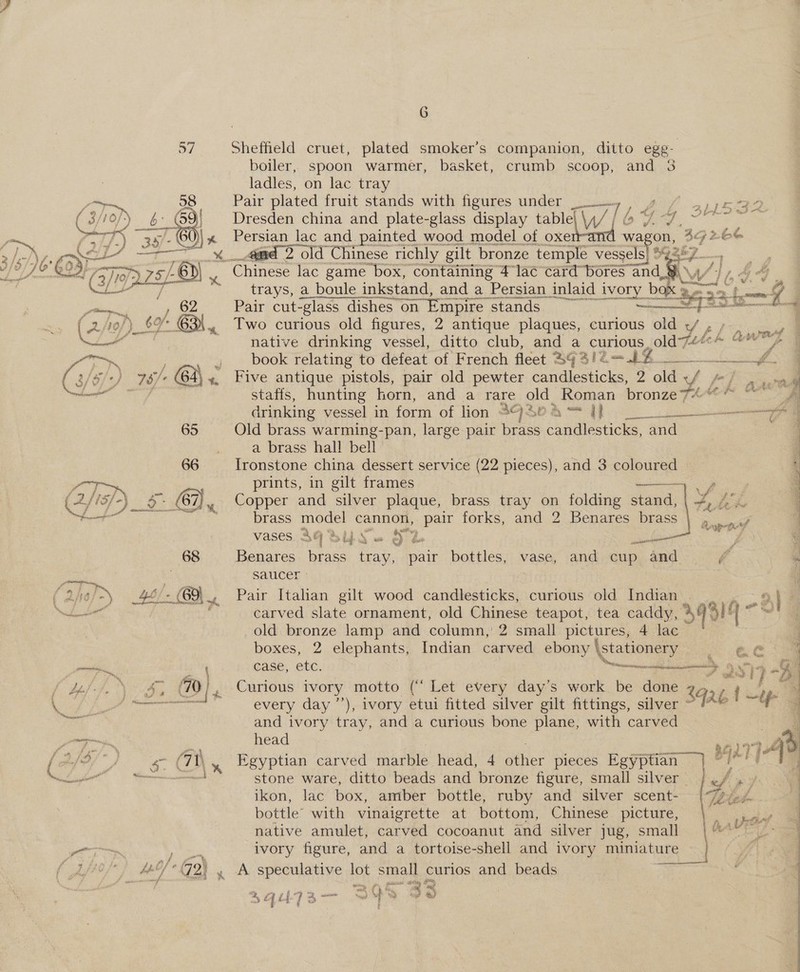 6
57 Sheffield cruet, plated smoker's companion, ditto egg-
boiler, spoon warmer, basket, crumb scoop, and 3
ladles, on lac tray
58 Pair plated fruit stands with figures under
(3/10/-) 6- 59 Dresden china and plate-glass display table W/
35/- 60 x Persian lac and painted wood model of oxen and wagon, 39266
x and 2 old Chinese richly gilt bronze temple vessels
75/- 61 x Chinese lac game box, containing 4 lac card bores and
trays, a boule inkstand, and a Persian inlaid ivory box
62 Pair cut-glass dishes on Empire stands
(2/10/) 60/- 63 x Two curious old figures, 2 antique plaques, curious old
native drinking vessel, ditto club, and a curious old
book relating to defeat of French fleet
(3/5/-) 75/- 64 x Five antique pistols, pair old pewter candlesticks, 2 old
staffs, hunting horn, and a rare old Roman bronze
drinking vessel in form of lion
65 Old brass warming-pan, large pair brass candlesticks, and
a brass hall bell
66 Ironstone china dessert service (22 pieces), and 3 coloured
prints, in gilt frames
(2/15/-) 5- 67 x Copper and silver plaque, brass tray on folding stand,
brass model cannon, pair forks, and 2 Benares brass
vases
68 Benares brass tray, pair bottles, vase, and cup and
saucer
69 x Pair Italian gilt wood candlesticks, curious old Indian
carved slate ornament, old Chinese teapot, tea caddy,
old bronze lamp and column, 2 small pictures, 4 lac
boxes, 2 elephants, Indian carved ebony stationery
case, etc.
70 x Curious ivory motto (“ Let every day's work be done
every day ”), ivory etui fitted silver gilt fittings, silver
and ivory tray, and a curious bone plane, with carved
head
71 x Egyptian carved marble head, 4 other pieces Egyptian
stone ware, ditto beads and bronze figure, small silver
ikon, lac box, amber bottle, ruby and silver scent-
bottle with vinaigrette at bottom, Chinese picture,
native amulet, carved cocoanut and silver jug, small
ivory figure, and a tortoise-shell and ivory miniature
72 x A speculative lot small curios and beads